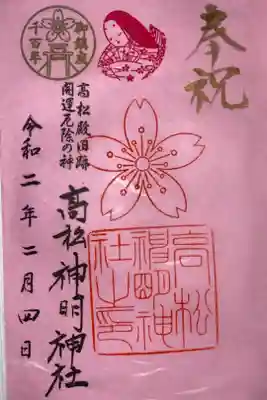 奉祝
御鎮座
千百年
高松殿旧跡
開運厄除の神
高松神明神社
令和二年二月四日
高松
神明神
社之印